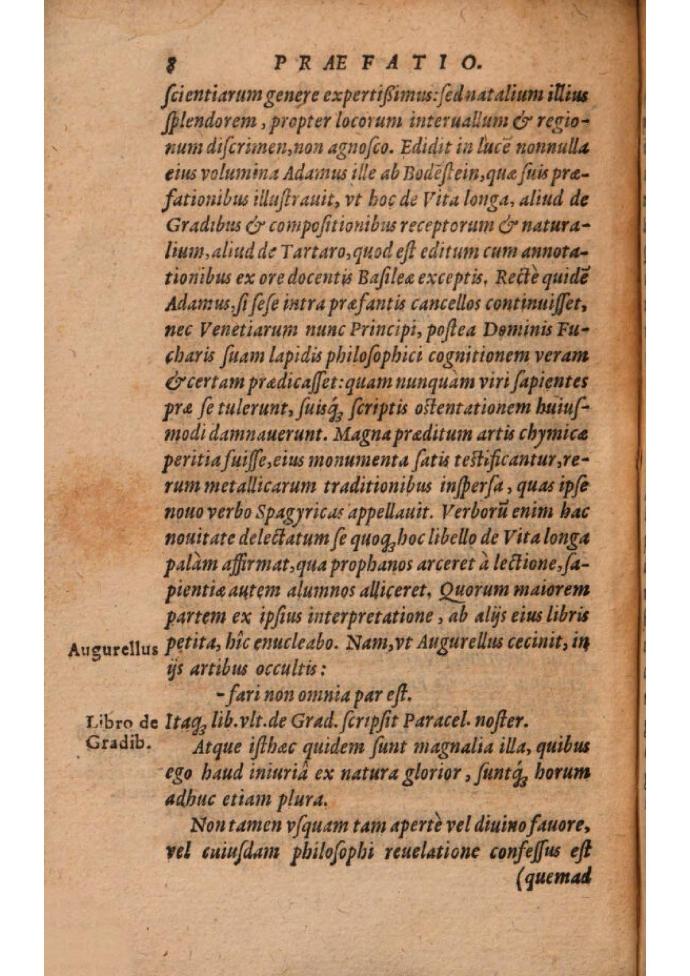 8 PRÆFATIO.
ſcientiarum genere expertiſsimus: ſed natalium illius
ſplendorem, propter locorum interuallum & regio-
num diſcrimen, non agnoſco. Edidit in lucē nonnulla
eius volumina Adamus ille ab Bodēſtein, quæ ſuis præ-
fationibus illuſtrauit, vt hoc de Vita longa, aliud de
Gradibus & compoſitionibus receptorum & natura-
lium, aliud de Tartaro, quod eſt editum cum annota-
tionibus ex ore docentis Baſileæ exceptis. Rectè quidē
Adamus, ſi ſeſe intra præfantis cancellos continuiſſet,
nec Venetiarum nunc Principi, poſtea Dominis Fu-
charis ſuam lapidis philoſophici cognitionem veram
& certam prædicaſſet: quam nunquàm viri ſapientes
præ ſe tulerunt, ſuisq́; ſcriptis oſtentationem huiuſ-
modi damnauerunt. Magna præditum artis chymicæ
peritia fuiſſe, eius monumenta ſatis teſtificantur, re-
rum metallicarum traditionibus inſperſa, quas ipſe
nouo verbo Spagyricas appellauit. Verborū enim hac
nouitate delectatum ſe quoq; hoc libello de Vita longa
palàm affirmat, qua prophanos arceret à lectione, ſa-
pientiæ autem alumnos alliceret. Quorum maiorem
partem ex ipſius interpretatione, ab alijs eius libris
Augurellus petita, hîc enucleabo. Nam, vt Augurellus cecinit, in
ijs artibus occultis:
-fari non omnia par eſt.
Libro de Itaq; lib. vlt. de Grad. ſcripſit Paracel. noſter.
Gradib. Atque iſthæc quidem ſunt magnalia illa, quibus
ego haud iniuriâ ex natura glorior, ſuntq́; horum
adhuc etiam plura.
Non tamen vſquam tam apertè vel diuino fauore,
vel cuiuſdam philoſophi reuelatione confeſſus eſt
(quemad